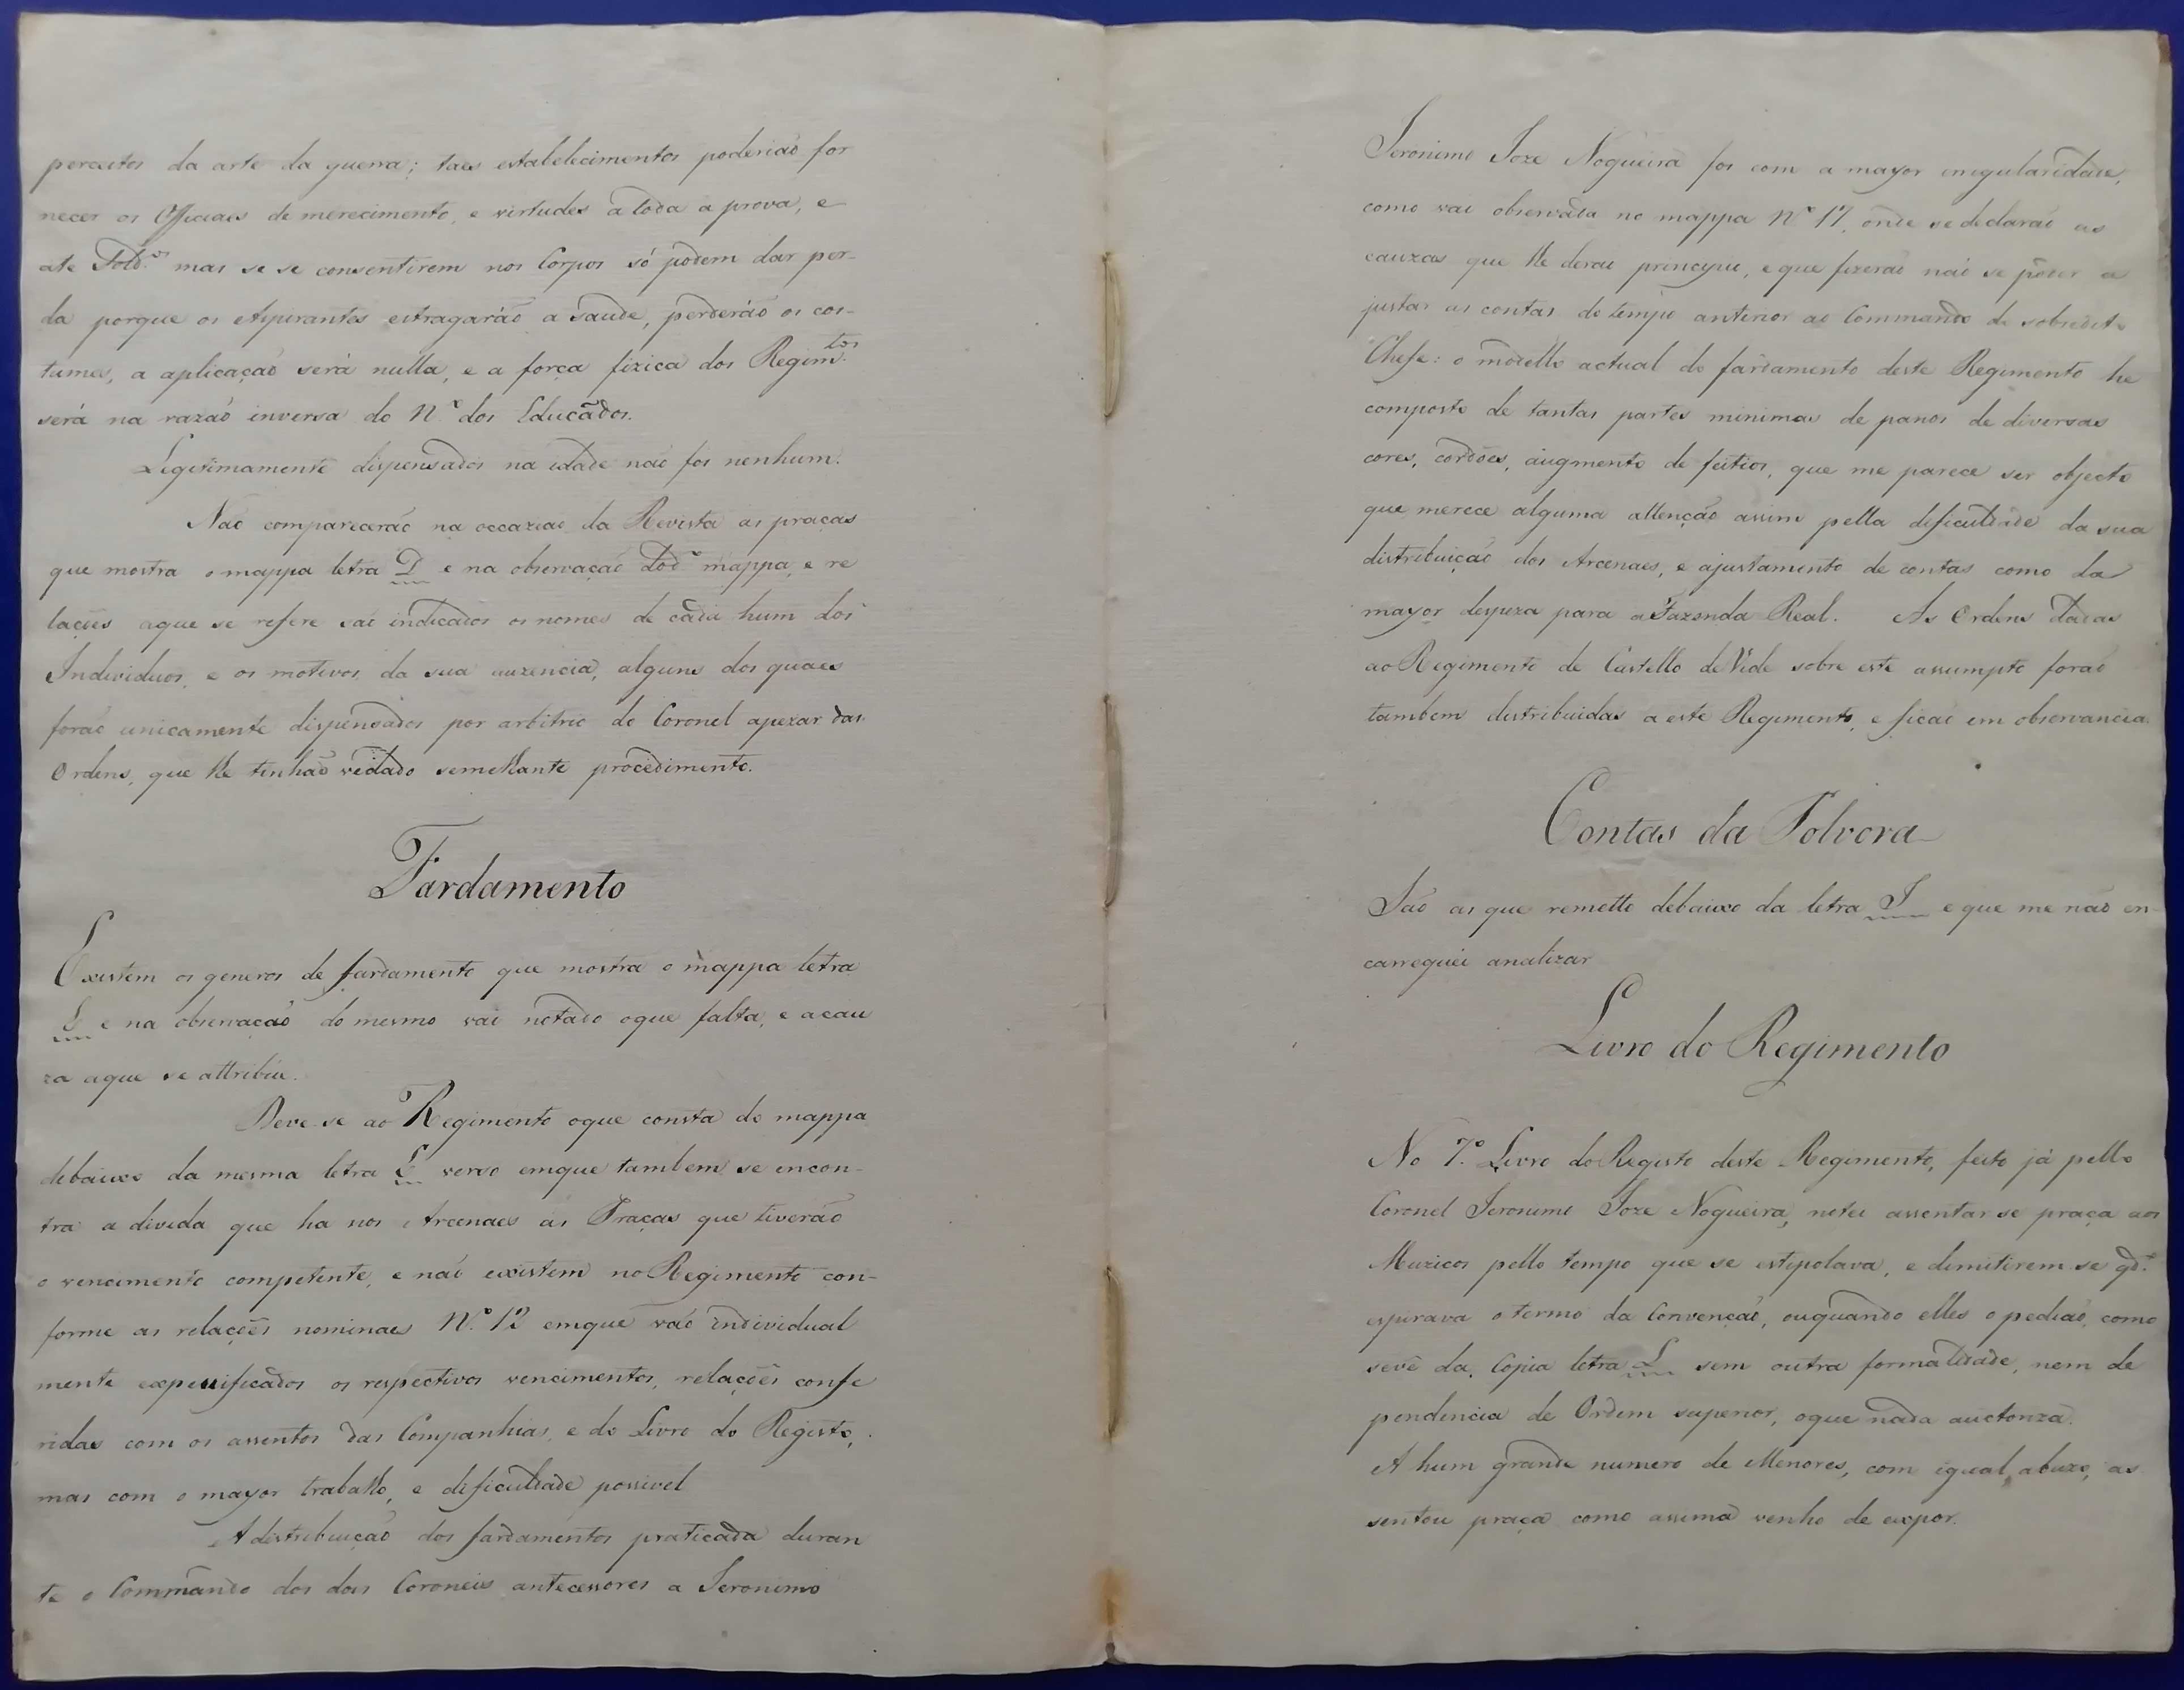 perceitos da arte da guerra; taes estabelecimentos poderiaõ for
necer os Officiaes de merecimento, e virtudes a toda a prova, e
ate Sold.os mas se se consentirem nos Corpos só podem dar per-
da porque os Aspirantes estragaráõ a saude, perderáõ os cos-
tumes, a aplicaçaõ será nulla, e a força fizica dos Regim.tos
será na razaõ inversa do N.º dos Educados.
Legitimamente dispensados na idade naõ foi nenhum.
Naõ comparecerão na occaziaõ da Revista as praças
que mostra o mappa letra D e na observaçaõ do d.º mappa, e re
lações aque se refere saõ indicados os nomes de cada hum dos
Individuos, e os motivos da sua auzencia, alguns dos quaes
foraõ unicamente dispensados por arbitrio do Coronel apezar das
Ordens, que lhe tinhaõ vedado semelhante procedimento.
Fardamento
Existem os generos de fardamento que mostra o mappa letra
E e na observaçaõ do mesmo vai notado oque falta, e acau
za aque se attribue.
Deve-se ao Regimento oque consta do mappa
debaixo da mesma letra E verso emque tambem se encon-
tra a divida que ha nos Arcenaes ás Praças que tiveraõ
o vencimento competente, e naõ existem no Regimento con-
forme as relações nominaes N.º 12 emque vaõ individual
mente expecificados os respectivos vencimentos, relações confe
ridas com os assentos das Companhias, e do Livro do Registo,
mas com o mayor trabalho, e dificuldade possivel
A distribuiçaõ dos fardamentos praticada duran
te o Commando dos dois Coroneis antecessores a Jeronimo
Jeronimo Joze Nogueira foi com a mayor irregularidade,
como vai observada no mappa N.º 17, onde se declaraõ as
cauzas que lhe deraõ principio, e que fizeraõ naõ se poder a
justar as contas do tempo anterior ao Commando do sobredito
Chefe: o modello actual do fardamento deste Regimento he
composto de tantas partes minimas de panos de diversas
cores, cordões, augmento de feitios, que me parece ser objecto
que merece alguma attençaõ assim pella dificuldade da sua
distribuiçaõ dos Arcenaes, e ajustamento de contas como da
mayor despeza para a Fazenda Real. As Ordens dadas
ao Regimento de Castello de Vide sobre este assumpto foraõ
tambem distribuidas a este Regimento, e ficaõ em observancia.
Contas da Polvora
Saõ as que remetto debaixo da letra I e que me naõ en-
carreguei analizar
Livro do Regimento
No 7.º Livro do Registo deste Regimento, feito já pello
Coronel Jeronimo Joze Nogueira, notei assentar se praça aos
Muzicos pello tempo que se estipolava, e demitirem se qd.º
espirava o termo da Convençaõ, ouquando elles o pediaõ, como
sevê da Copia letra L sem outra formalidade, nem de
pendencia de Ordem superior, oque nada auctoriza.
A hum grande numero de Menores, com igual abuzo, as
sentou praça como assima venho de expor.